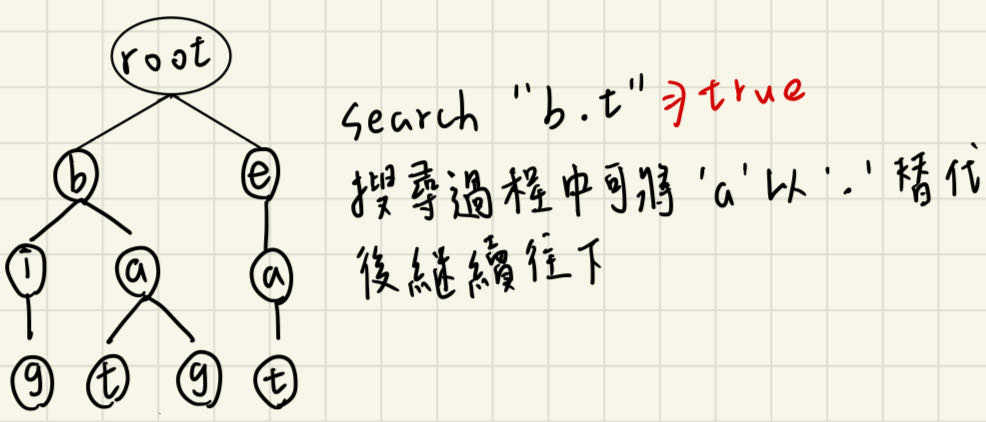 root
b e
i a a
g t g t
search "b.t" ⇒ true
搜尋過程中可將 'a' 以 '.' 替代
後繼續往下